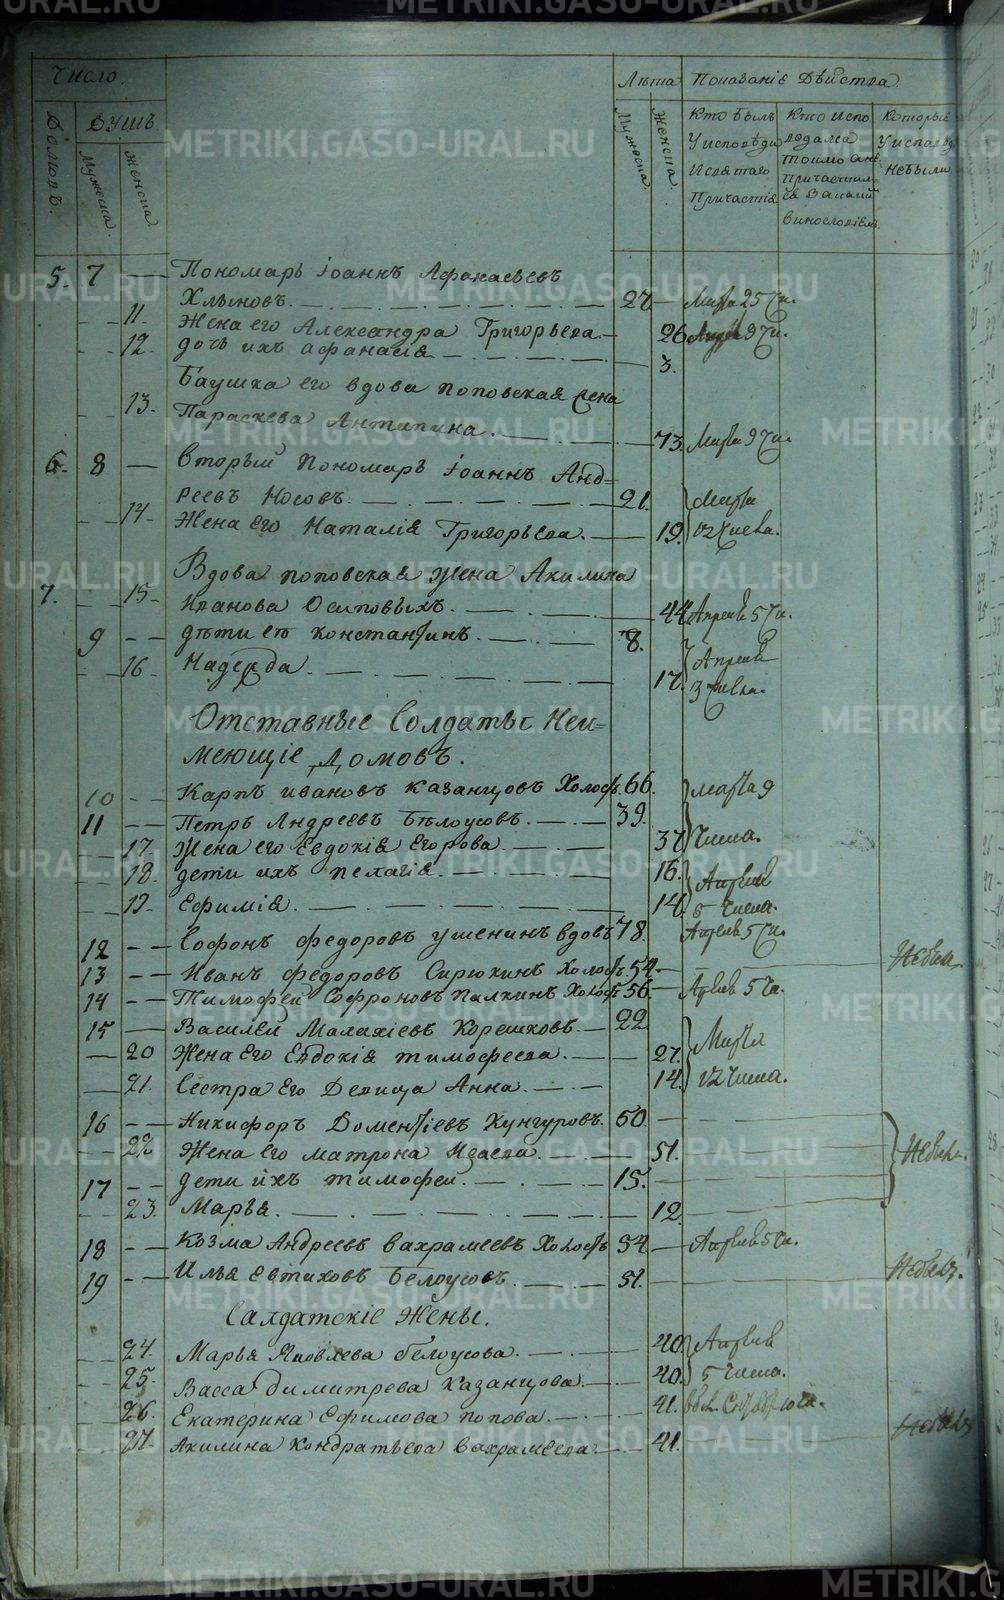 Число.
Лѣта Показаніе Дѣиства.
Домовъ.
Душъ
Мужеска.
Женска
Мужеска.
Женска.
Кто были
У исповѣди
И святаго
Причастія
Кто испо
ведался
токмо а не
Причастил
ся
винословіемъ
Которые
У исповѣди
Небыли
5. 7 — Пономарь Іоаннъ Афанасьевъ
Хлыновъ. — 27 — Марта 25 Чи.
11. Жена его Александра Григорьева — 26 9 Чи.
12. дочь ихъ Афанасія — 3.
Баушка его вдова поповская жена
13. Параскева Антипина. — 73. Марта 9 Чи.
6. 8 — Вторый Пономарь Іоаннъ Анд=
реевъ Носовъ. — 21. Марта
14. Жена Его Наталія Григорьева. — 19. 12 Числа.
Вдова поповская Жена Акилина
7. 15. Иванова Осиповыхъ. — 44 Апреля 5 Чи.
9 — дѣти еѣ Константинъ. — 8.
16. Надежда. — 17. Апреля
3 Числа.
Отставные Солдаты Неи=
меющіе Домовъ.
10 — Карпъ Ивановъ Казанцовъ Холосъ. 66. Марта 9
11 — Петръ Андреевъ Бѣлоусовъ. — 39.
17. Жена его Евдокія Егорова. — 37 Числа.
18. дети ихъ Пелагія. — 16. Апреля
19. Ефимія. — 14. 5 Числа.
12 — Софонъ Федоровъ Ушенинъ вдовъ 78. Апреля 5 Чи.
13 — Иванъ Федоровъ Сирюхинъ Холосъ. 54. — Небыл
14 — Тимофей Софроновъ Палкинъ Холосъ 56. — Апреля 5 Чи.
15 — Василей Малахіевъ Корешковъ. — 22 Марта
20 Жена Его Евдокія Тимофеева. — 27.
21. Сестра Его Девица Анна. — 14. 12 Числа.
16 — Никифоръ Дометіевъ Кунгуровъ. 50. —
22 Жена его Матрона Исаева. — 51. Небыли.
17 — дети ихъ Тимофей. — 15. —
23. Марья. — 12
18 — Козма Андреевъ Вахрамеевъ Холостъ 54. — Апреля 5 Чи.
19 — Илья Евтиховъ Белоусовъ. — 51. — Небылъ.
Салдатскіе Жены.
24. Марья Яковлева Белоусова. — 40. Апреля
25. Васса Димитрева Казанцова. — 40. 5 Числа.
26. Екатерина Ефимова Попова. — 41.
27. Акилина Кондратьева Вахрамеева — 41. Небыла
METRIKI.GASO-URAL.RU